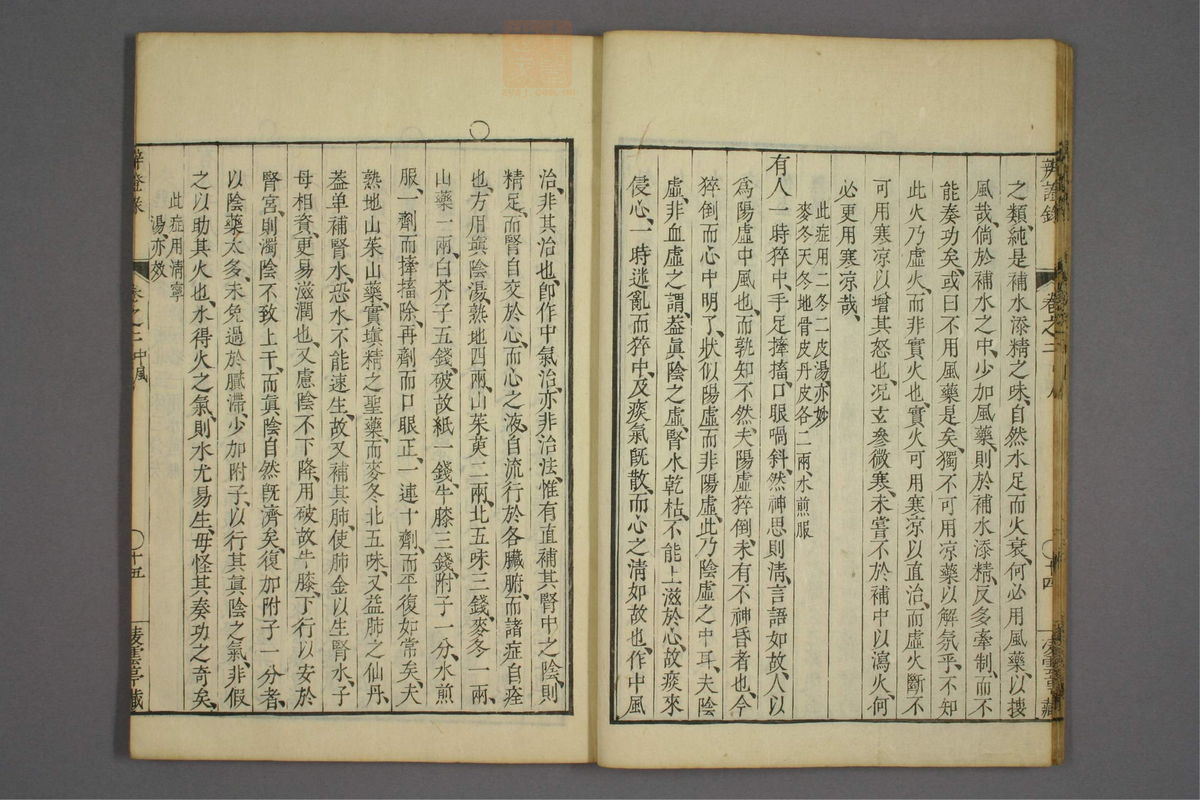 辨證錄
卷之二
十四
之類、純是補水添精之味、自然水足而火衰、何必用風藥、以搜
風哉、倘於補水之中、少加風藥、則於補水添精、反多牽制、而不
能奏功矣、或曰不用風藥是矣、獨不可用凉藥以解氛乎、不知
此火乃虛火、而非實火也、實火可用寒凉以直治、而虛火斷不
可用寒凉以增其怒也、况玄參微寒、未嘗不於補中以瀉火、何
必更用寒凉哉、
此症用二冬二皮湯、亦妙
麥冬天冬地骨皮丹皮各二兩、水煎服
有人一時猝中、手足搐搦、口眼喎斜、然神思則淸、言語如故、人以
爲陽虛中風也、而孰知不然、夫陽虛猝倒、未有不神昏者也、今
猝倒而心中明了、狀似陽虛而非陽虛、此乃陰虛之中耳、夫陰
虛、非血虛之謂、葢眞陰之虛、腎水乾枯、不能上滋於心、故痰來
侵心、一時迷亂而猝中、及痰氣旣散、而心之淸如故也、作中風
治、非其治也、卽作中氣治、亦非治法、惟有直補其腎中之陰、則
精足、而腎自交於心、而心之液、自流行於各臟腑、而諸症自痊
也、方用填陰湯、熟地四兩、山茱萸二兩、北五味三錢、麥冬一兩、
山藥二兩、白芥子五錢、破故紙一錢、牛膝三錢、附子一分、水煎
服、一劑而搐搦除、再劑而口眼正、一連十劑、而平復如常矣、夫
熟地山茱山藥、實塡精之聖藥、而麥冬北五味、又益肺之仙丹、
葢单補腎水、恐水不能速生、故又補其肺、使肺金以生腎水、子
母相資、更易滋潤也、又慮陰不下降、用破故牛膝、下行以安於
腎宮、則濁陰不致上干、而眞陰自然旣濟矣、復加附子一分者、
以陰藥太多、未免過於膩滯、少加附子、以行其眞陰之氣、非假
之以助其火也、水得火之氣、則水尤易生、毋怪其奏功之奇矣、
此症用淸寧
湯、亦效
卷之二 中風
十五